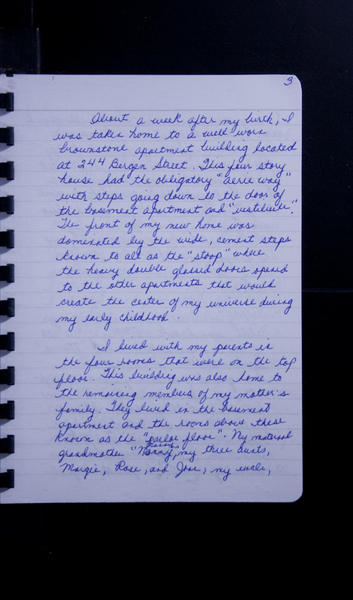 3
About a week after my birth, I
was taken home to a well worn
brownstone apartment building located
at 244 Bergen Street. This four story
house had the obligatory "aerie way"
with steps going down to the door of
the basement apartment and "vestibule."
The front of my new home was
dominated by the wide, cement steps
known to all as the "stoop" where
the heavy double glassed doors opened
to the other apartments that would
create the center of my universe during
my early childhood.
I lived with my parents in
the four rooms that were on the top
floor. This building was also home to
the remaining members of my mother's
family. They lived in the basement
apartment and the rooms above these
known as the "parlor floor". My maternal
grandmother "Nanny", my three aunts,
Margie, Rose, and Joan, my uncle,